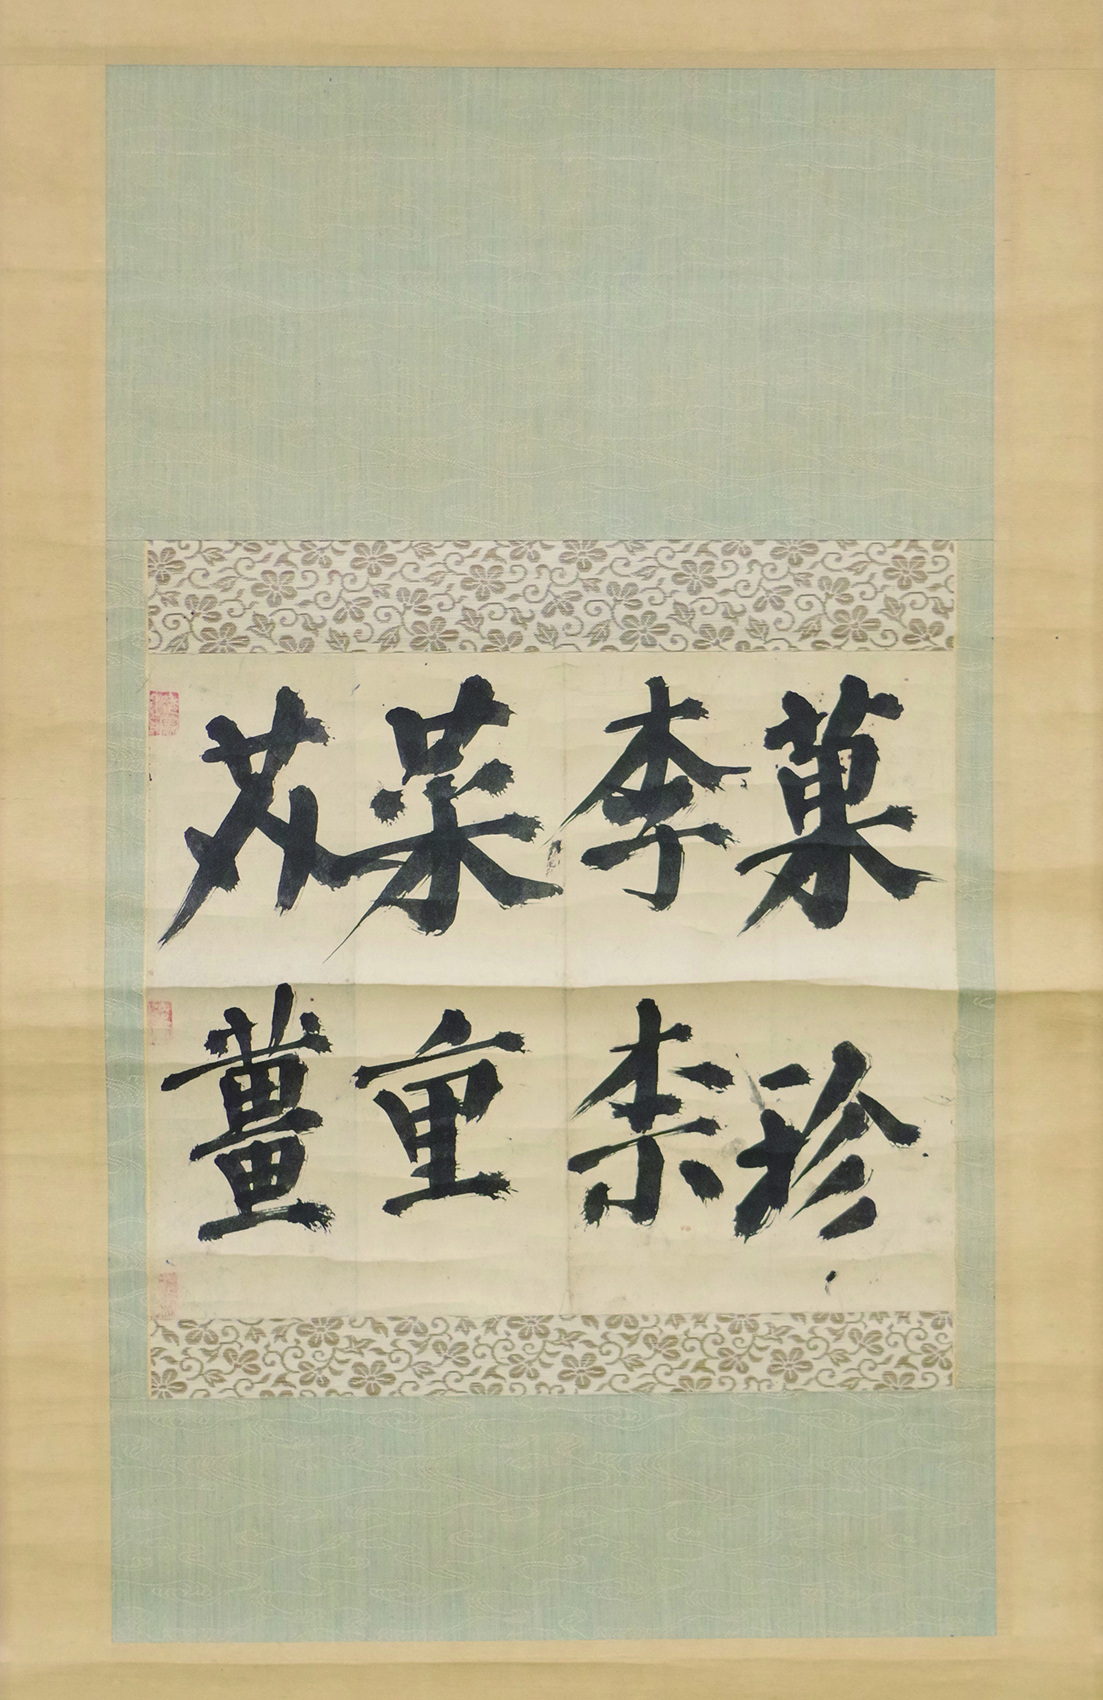 菓珍
李柰
菜重
芥薑